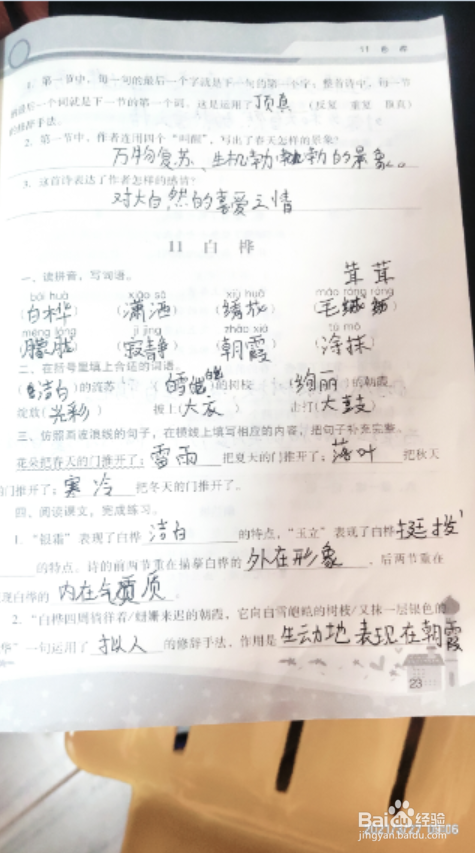 11 白 桦
1. 第一节中，每一句的最后一个字就是下一句的第一个字；整首诗中，每一节
的最后一个词就是下一节的第一个词。这是运用了 顶真 （反复 重复 顶真）
的修辞手法。
2. 第一节中，作者连用四个“叫醒”，写出了春天怎样的景象？
万物复苏、生机勃勃的景象。
3. 这首诗表达了作者怎样的感情？
对大自然的喜爱之情
11 白 桦
一、读拼音，写词语。
茸茸
bái huà xiāo sǎ xiù huā máo róng róng
（白桦） （潇洒） （绣花） （毛绒）
méng lóng jì jìng zhāo xiá tú mǒ
（朦胧） （寂静） （朝霞） （涂抹）
二、在括号里填上合适的词语。
（洁白）的流苏 （雪皑皑）的树枝 （绚丽）的朝霞
绽放（光彩） 披上（大衣） 击打（大鼓）
三、仿照画波浪线的句子，在横线上填写相应的内容，把句子补充完整。
花朵把春天的门推开了；雷雨 把夏天的门推开了；落叶 把秋天
的门推开了；寒冷 把冬天的门推开了。
四、阅读课文，完成练习。
1. “银霜”表现了白桦 洁白 的特点，“玉立”表现了白桦 挺拔
的特点。诗的前两节重在描摹白桦的 外在形象 ，后两节重在
现白桦的 内在气质 。
2. “白桦四周徜徉着/姗姗来迟的朝霞，它向白雪皑皑的树枝/又抹一层银色的
华”一句运用了 拟人 的修辞手法，作用是 生动地表现在朝霞
23
Baidu经验
jingyan.baidu.com